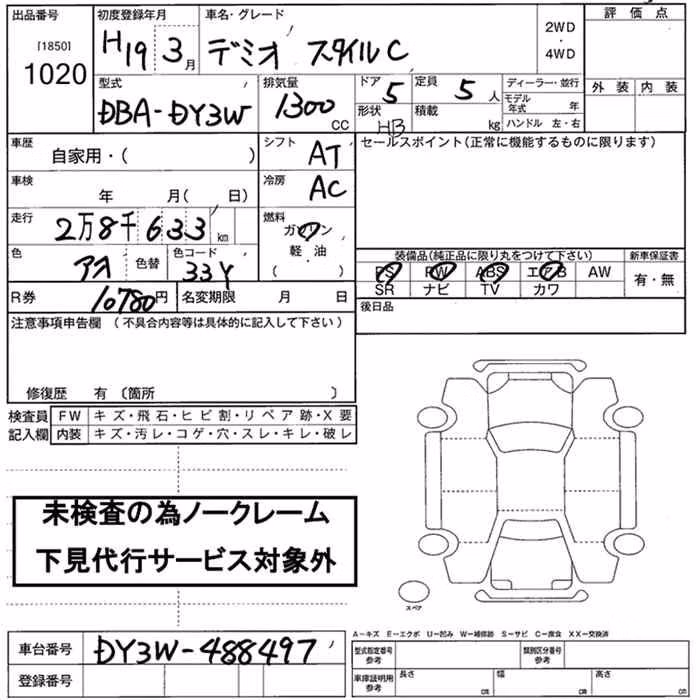 出品番号 初度登録年月 車名・グレード 評価点
[1850] 1020 H19 3月 デミオ スタイルC 2WD・4WD
外装 内装
型式 排気量 ドア 定員 ディーラー・並行
DBA-DY3W 1300CC 5 5人 モデル年式 年
形状 HB 積載 kg ハンドル 左・右
車歴 自家用・( ) シフト AT セールスポイント(正常に機能するものに限ります)
車検 年 月( 日) 冷房 AC
走行 2万8千633km 燃料 ガソリン
軽・油
( )
色 アオ 色替 色コード 33Y 装備品(純正品に限り丸をつけて下さい) 新車保証書
PS PW ABS エアB AW 有・無
SR ナビ TV カワ
R券 10780円 名変期限 月 日 後日品
注意事項申告欄(不具合内容等は具体的に記入して下さい)
修復歴 有〔箇所 〕
検査員 FW キズ・飛石・ヒビ割・リペア跡・X要
記入欄 内装 キズ・汚レ・コゲ・穴・スレ・キレ・破レ
未検査の為ノークレーム
下見代行サービス対象外
スペア
A−キズ E−エクボ U−凹み W−補修跡 S−サビ C−腐食 XX−交換済
車台番号 DY3W-488497 型式指定番号 参考 類別区分番号 参考
登録番号 車庫証明用 参考 長さ cm 幅 cm 高さ cm